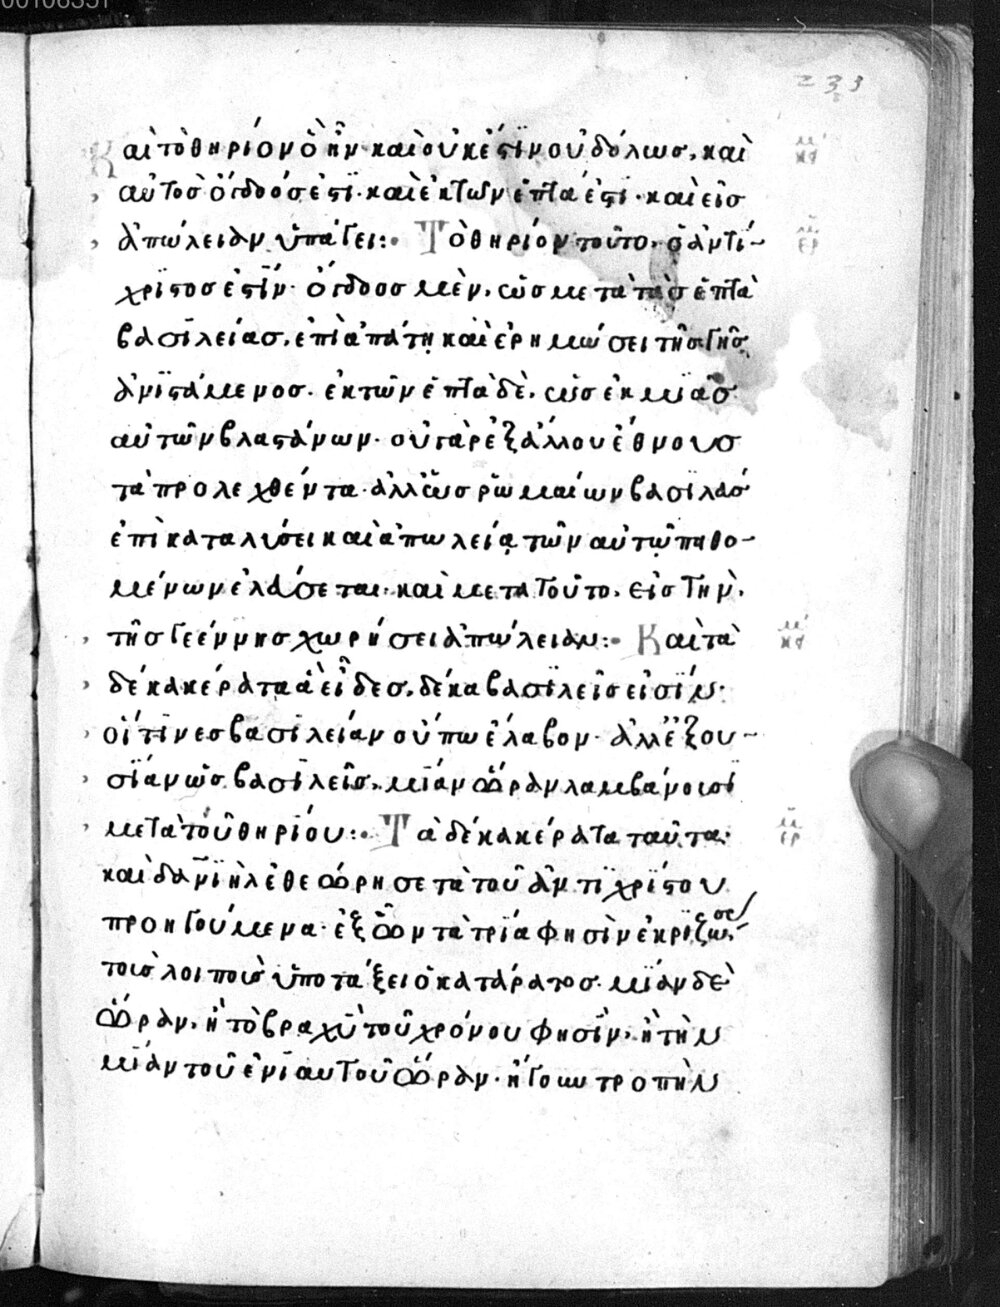 233
Καὶ τὸ θηρίον ὃ ἦν καὶ οὐκ ἔστιν οὐδ' ὅλως, καὶ
αὐτὸς ὄγδοός ἐστι· καὶ ἐκ τῶν ἑπτά ἐστι· καὶ εἰς
ἀπώλειαν ὑπάγει:· Τὸ θηρίον τοῦτο, ὁ ἀντί-
χριστός ἐστίν· ὄγδοος μὲν, ὡς μετὰ τὰς ἑπτὰ
βασιλείας, ἐπὶ ἀπάτῃ καὶ ἐρημώσει τῆς γῆς
ἀνιστάμενος· ἐκ τῶν ἑπτὰ δὲ, ὡς ἐκ μιᾶς
αὐτῶν βλαστάνων· οὐ γὰρ ἐξ ἄλλου ἔθνους
τὰ προλεχθέντα· ἀλλ' ὡς ῥωμαίων βασιλεὺς
ἐπὶ καταλύσει καὶ ἀπωλείᾳ τῶν αὐτῷ πειθο-
μένων ἐλεύσεται· καὶ μετὰ τοῦτο, εἰς τὴν,
τῆς γεέννης χωρήσει ἀπώλειαν:· Καὶ τὰ
δέκα κέρατα ἃ εἶδες, δέκα βασιλεῖς εἰσίν·
οἵτινες βασιλείαν οὔπω ἔλαβον· ἀλλ' ἐξου-
σίαν ὡς βασιλεῖς, μίαν ὥραν λαμβάνουσι
μετὰ τοῦ θηρίου:· Τὰ δέκα κέρατα ταῦτα·
καὶ δανιὴλ ἐθεώρησε τὰ τοῦ ἀντιχρίστου
προηγούμενα· ἐξ ὧν τὰ τρία φησὶν ἐκριζώσας
τοὺς λοιποὺς ὑποτάξει ὁ κατάρατος· μίαν δὲ
ὥραν, ἢ τὸ βραχὺ τοῦ χρόνου φησὶν, ἢ τὴν
μίαν τοῦ ἐνιαυτοῦ ὥραν· ἤγουν τροπὴν